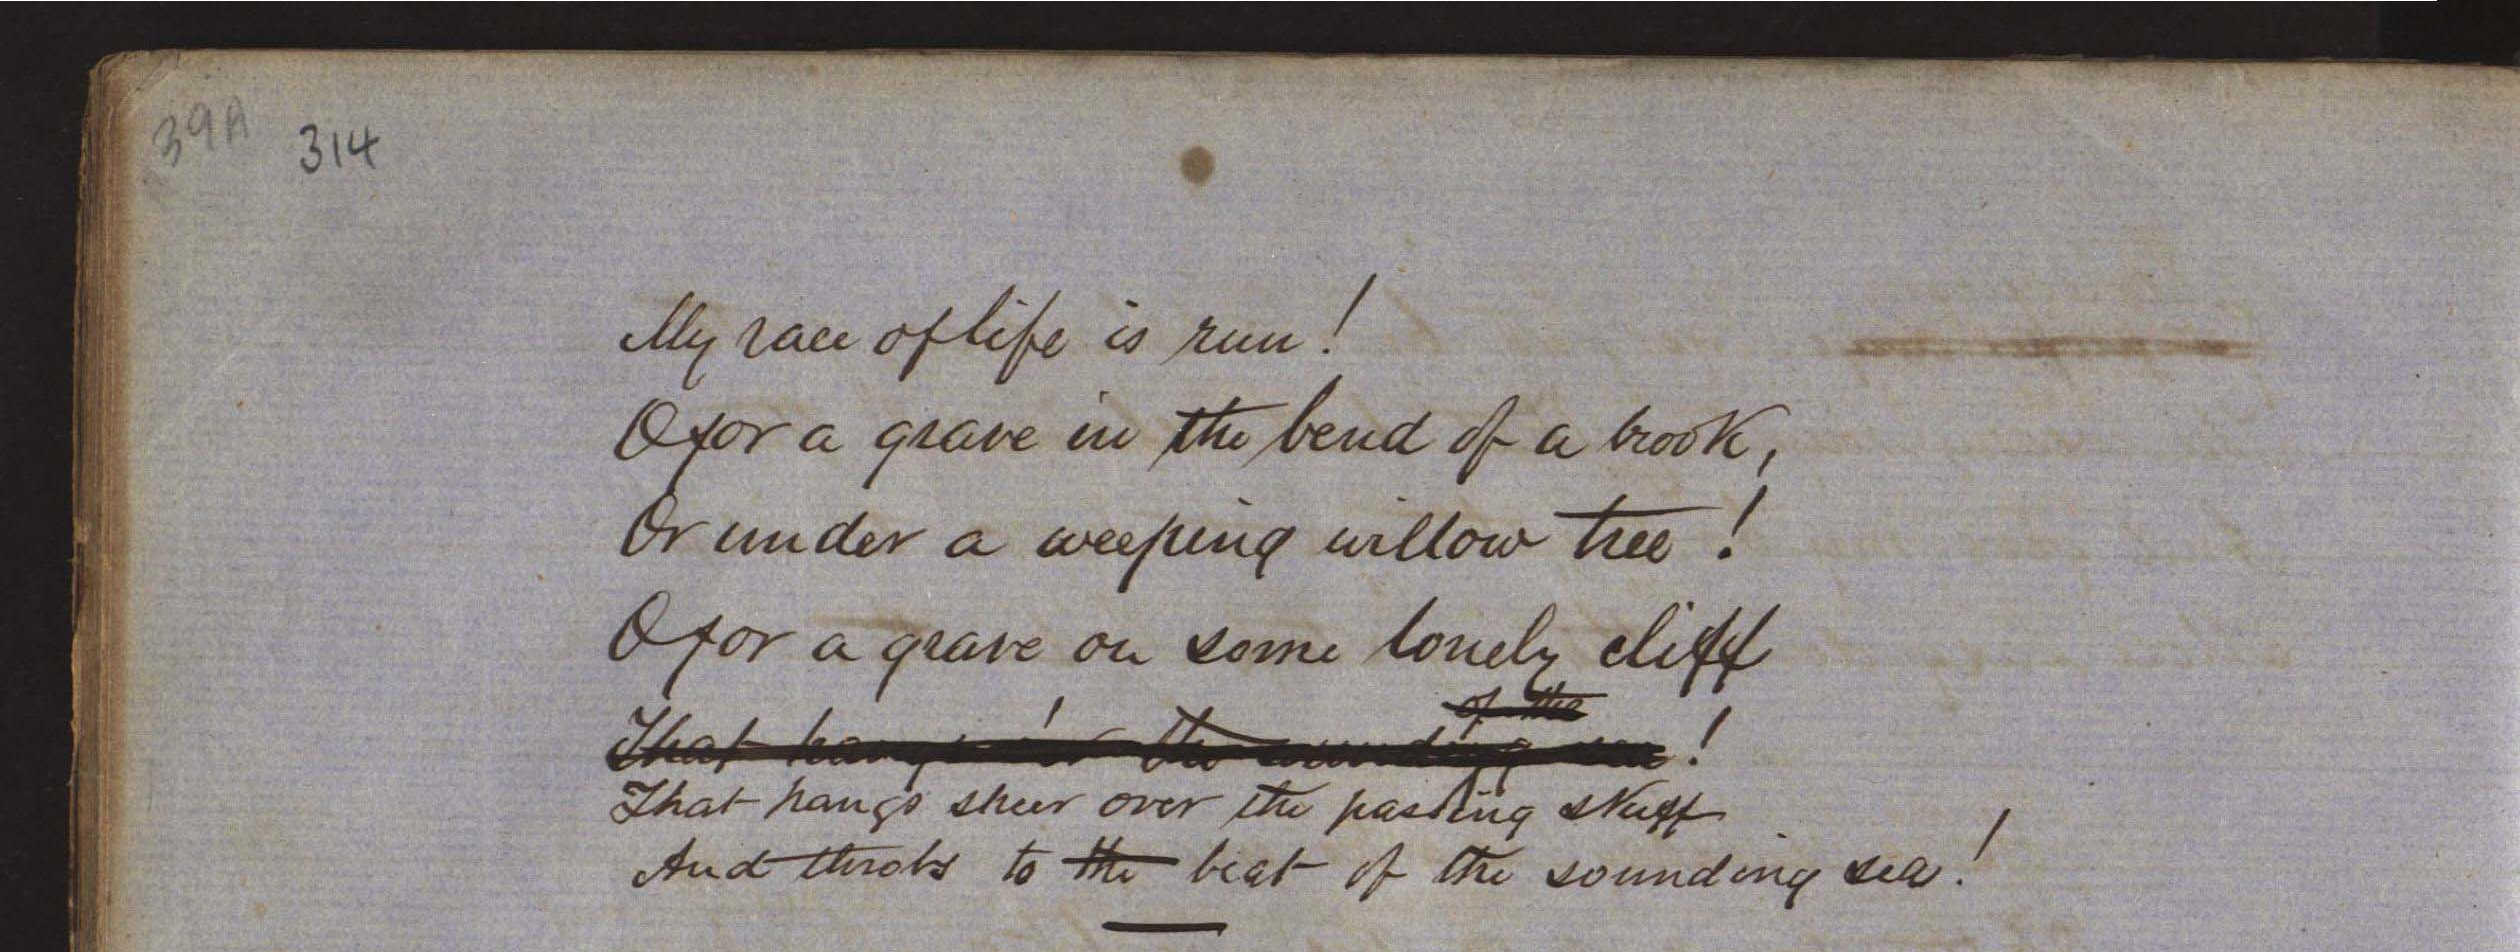 39A 314
My race of life is run!
O for a grave in the bend of a brook,
Or under a weeping willow tree!
O for a grave on some lonely cliff
of the
That hangs o'er the sounding sea!
That hangs sheer over the passing skiff
And throbs to the beat of the sounding sea!